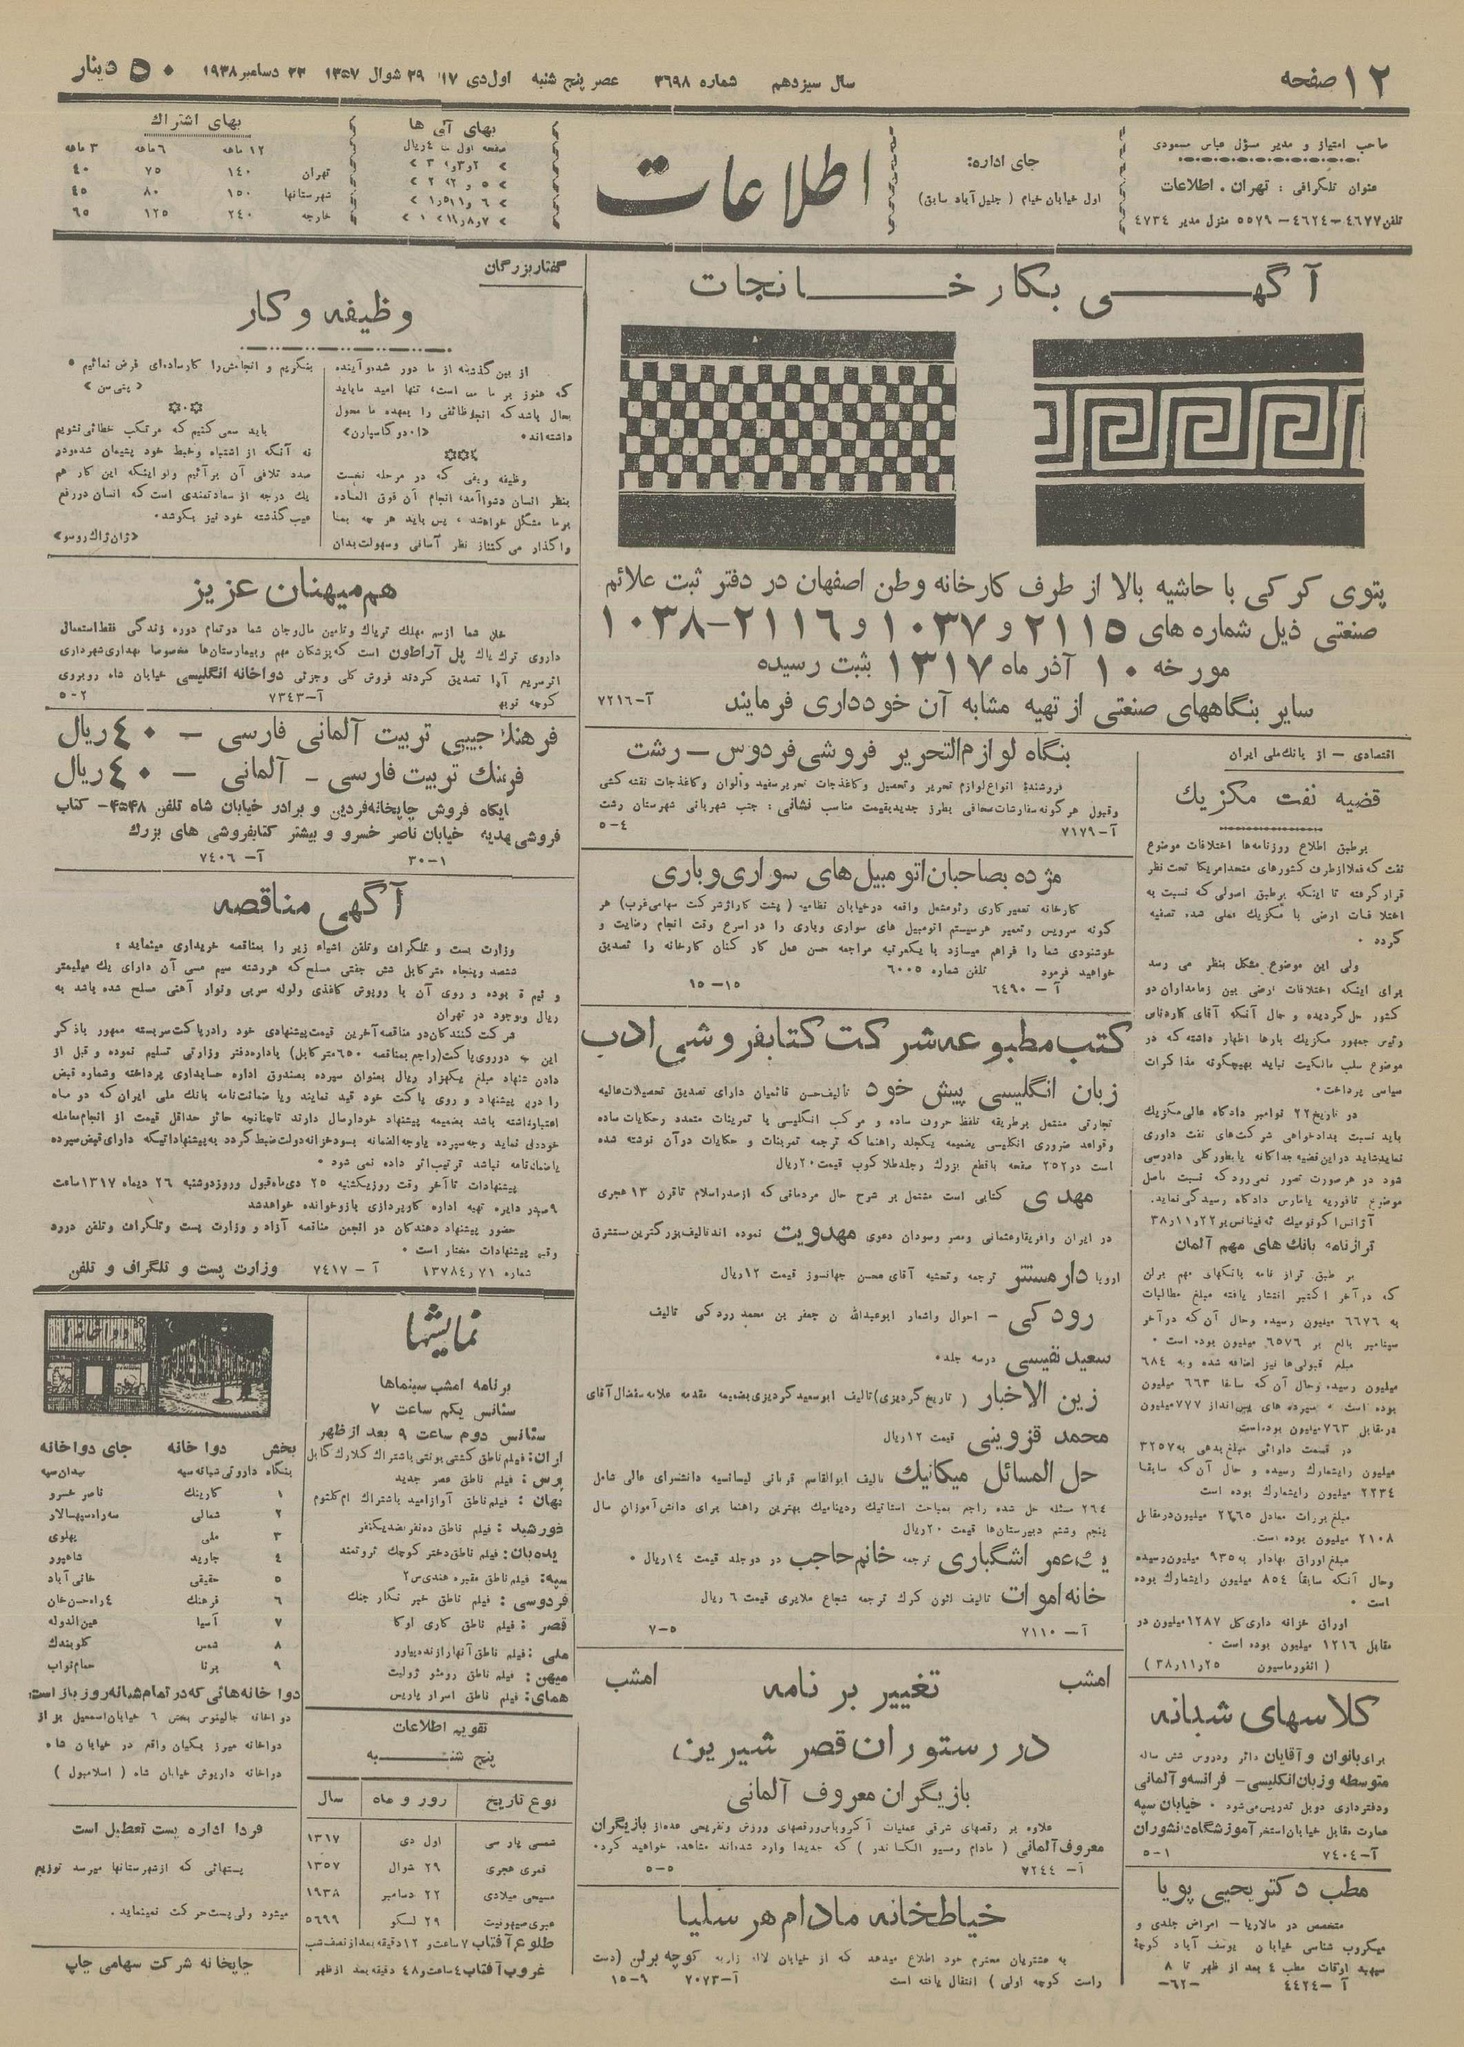 ۱۲ صفحه
سال سیزدهم شماره ۳۶۹۸ عصر پنج شنبه اول دی ۱۷ ۲۹ شوال ۱۳۵۷ ۲۲ دسامبر ۱۹۳۸
۵۰ دینار
صاحب امتیاز و مدیر مسؤل عباس مسعودی
عنوان تلگرافی : تهران . اطلاعات
تلفن ۴۶۷۷-۴۶۲۴-۵۵۷۹ منزل مدیر ۴۷۳۴
جای اداره:
اول خیابان خیام ( جلیل آباد سابق )
اطلاعات
بهای آگهی ها
بهای اشتراك
۱۲ ماهه ۶ ماهه ۳ ماهه
تهران ۱۴۰ ۷۵ ۴۰
شهرستانها ۱۵۰ ۸۰ ۴۵
خارجه ۲۴۰ ۱۲۵ ۶۵
آگهی بکارخانجات
پتوی کرکی با حاشیه بالا از طرف کارخانه وطن اصفهان در دفتر ثبت علائم
صنعتی ذیل شماره های ۲۱۱۵ و ۱۰۳۷ و ۲۱۱۶-۱۰۳۸
مورخه ۱۰ آذر ماه ۱۳۱۷ بثبت رسیده
سایر بنگاههای صنعتی از تهیه مشابه آن خودداری فرمایند آ-۷۲۱۶
اقتصادی - از بانك ملی ایران
قضیه نفت مکزیك
برطبق اطلاع روزنامه‌ها اختلافات موضوع
نفت که فعلا از طرف کشورهای متحد امریکا تحت نظر
قرار گرفته تا اینکه برطبق اصولی که نسبت به
اختلافات ارضی با مکزیك عملی شد، تصفیه
گردد .
ولی این موضوع مشکل بنظر می رسد
برای اینکه اختلافات ارضی بین زمامداران دو
کشور حل گردیده و حال آنکه آقای کاردناس
رئیس جمهور مکزیك بارها اظهار داشته که در
موضوع سلب مالکیت نباید بهیچگونه مذاکرات
سیاسی پرداخت.
در تاریخ ۲۲ نوامبر دادگاه عالی مکزیك
باید نسبت بدادخواهی شرکت های نفت داوری
نماید شاید در این قضیه جداگانه یا بطور کلی دادرسی
شود در هر صورت تصور نمی رود که نسبت باصل
موضوع تا فوریه یا مارس دادگاه رسیدگی نماید.
ترازنامه بانك های مهم آلمان
بر طبق تراز نامه بانکهای مهم برلن
که در آخر اکتبر انتشار یافته مبلغ مطالبات
به ۶۶۷۶ میلیون رسیده وحال آن که در آخر
سپتامبر بالغ بر ۶۵۷۶ میلیون بوده است .
مبلغ قبولی ها نیز اضافه شده و به ۶۸۴
میلیون رسیده وحال آن که سابقا ۶۶۳ میلیون
بوده است . سپرده های پس انداز ۷۷۷ میلیون
در مقابل ۷۶۳ میلیون بوده است
در قسمت دارائی مبلغ بدهی به ۳۲۵۷
میلیون رایشمارك رسیده و حال آن که سابقا
۲۲۳۴ میلیون رایشمارك بوده است
۲۱۰۸ میلیون بوده است.
مبلغ اوراق بهادار به ۹۳۵ میلیون رسیده
وحال آنکه سابقا ۸۵۴ میلیون رایشمارك بوده
است .
اوراق خزانه داری کل ۱۲۸۷ میلیون در
مقابل ۱۲۱۶ میلیون بوده است .
( انفورماسیون ۲۵ر۱۱ر۳۸ )
کلاسهای شبانه
برای بانوان و آقایان دائر ودروس شش ساله
متوسطه وزبان انگلیسی - فرانسه و آلمانی
ودفترداری دوبل تدریس می شود . خیابان سپه
عمارت مقابل خیابان استخر آموزشگاه دانشوران
آ-۷۴۰۴ ۱-۵
مطب دکتر یحیی پویا
متخصص در مالاریا - امراض جلدی و
میکروب شناسی خیابان یوسف آباد کوچهٔ
سپهبد اوقات مطب ۴ بعد از ظهر تا ۸
آ - ۴۴۲۴ -۶۲-
بنگاه لوازم‌التحریر فروشی فردوس - رشت
فروشندهٔ انواع لوازم تحریر وتحصیل وکاغذجات تحریر سفید والوان وکاغذجات نقشه کشی
وقبول هرگونه سفارشات صحافی بطرز جدید بقیمت مناسب نشانی : جنب شهربانی شهرستان رشت
آ-۷۱۷۹ ۴-۵
مژده بصاحبان اتومبیل های سواری و باری
گونه سرویس وتعمیر هرسیستم اتومبیل های سواری وباری را در اسرع وقت انجام رضایت و
خوشنودی شما را فراهم میسازد با یکمرتبه مراجعه حسن عمل کار کنان کارخانه را تصدیق
خواهید فرمود تلفن شماره ۶۰۰۵
آ - ۶۴۹۰ ۱۵-۱۵
کتب مطبوعه شرکت کتابفروشی ادب
زبان انگلیسی پیش خود تالیف حسن قائمیان دارای تصدیق تحصیلات عالیه
تجارتی مشتمل برطریقه تلفظ حروف ساده و مرکب انگلیسی با تمرینات متعدد وحکایات ساده
وقواعد ضروری انگلیسی بضمیمه یکجلد راهنما که ترجمه تمرینات و حکایات در آن نوشته شده
است در ۲۵۲ صفحه باقطع بزرك وجلد طلاکوب قیمت ۲۰ ریال
مهدی کتابی است مشتمل بر شرح حال مردمانی که از صدر اسلام تا قرن ۱۳ هجری
در ایران وافریقا وعثمانی ومصر وسودان دعوی مهدویت نموده اند تالیف بزرگترین مستشرق
اروپا دارمستتر ترجمه وتحشیه آقای محسن جهانسوز قیمت ۱۲ ریال
رودکی - احوال واشعار ابوعبدالله بن جعفر بن محمد رودکی تالیف
سعید نفیسی در سه جلد.
زین الاخبار ( تاریخ گردیزی) تالیف ابوسعید گردیزی بضمیمه مقدمه علامه مفضال آقای
محمد قزوینی قیمت ۱۲ ریال
حل المسائل میکانیك تالیف ابوالقاسم قربانی لیسانسیه دانشسرای عالی شامل
۲۶۴ مسئله حل شده راجع بمباحث استاتیك ودینامیك بهترین راهنما برای دانش آموزان سال
پنجم وششم دبیرستان ها قیمت ۲۰ ریال
یك عمر اشگباری ترجمه خانم حاجب در دو جلد قیمت ۱۴ ریال .
خانه اموات تالیف لئون کرك ترجمه شجاع ملایری قیمت ۶ ریال
آ - ۷۱۱۰ ۵-۷
امشب تغییر برنامه امشب
در رستوران قصر شیرین
بازیگران معروف آلمانی
معروف آلمانی ( مادام ومسیو الکساندر ) که جدیدا وارد شده‌اند مشاهده خواهید کرد.
آ- ۷۲۴۴ ۵-۵
خیاطخانه مادام هرسلیا
به مشتریان محترم خود اطلاع میدهد که از خیابان لاله زار به کوچه برلن (دست
راست کوچه اولی ) انتقال یافته است آ-۷۰۷۳ ۹-۱۵
گفتار بزرگان
وظیفه و کار
از بین گذشته از ما دور شده و آینده
داشته‌اند.
وظیفه وقتی که در مرحله نخست
بنظر انسان دشوار آمد، انجام آن فوق العاده
برما مشکل خواهد شد ، پس باید هر چه بما
واگذار می کنند از نظر آسانی وسهولت بدان
بنگریم و انجامش را کار ساده‌ای فرض نمائیم .
باید سعی کنیم که مرتکب خطائی نشویم
نه آنکه از اشتباه وخبط خود پشیمان شده و در
صدد تلافی آن برآئیم ولو اینکه این کار هم
یك درجه از سعادتمندی است که انسان در رفع
عیب گذشته خود نیز بکوشد.
«ژان ژاك روسو»
هم میهنان عزیز
داروی ترك پل آراطون است که پزشکان مهم وبیمارستان‌ها مخصوصا بهداری شهرداری
اثر سریع آنرا تصدیق کردند فروش کلی وجزئی دواخانه انگلیسی خیابان شاه روبروی
آ-۷۳۴۳ ۲-۵
فرهنك جیبی تربیت آلمانی فارسی - ۴۰ ریال
فرهنك تربیت فارسی - آلمانی - ۴۰ ریال
جایگاه فروش چاپخانه فردین و برادر خیابان شاه تلفن ۴۵۴۸- کتاب
فروشی مهدیه خیابان ناصر خسرو و بیشتر کتابفروشی های بزرك
آ- ۷۴۰۶ ۱-۳۰
آگهی مناقصه
وزارت پست و تلگراف وتلفن اشیاء زیر را بمناقصه خریداری مینماید :
ششصد وپنجاه متر کابل شش جفتی مسلح که هر رشته سیم مسی آن دارای یك میلیمتر
و نیم بوده و روی آن با روپوش کاغذی ولوله سربی ونوار آهنی مسلح شده باشد به
شرکت کنندگان در مناقصه آخرین قیمت پیشنهادی خود را در پاکت سربسته ممهور باذکر
پیشنهادات تا آخر وقت روز یکشنبه ۲۵ دی ماه قبول و روز دوشنبه ۲۶ دیماه ۱۳۱۷ ساعت
۹ صبح در دایره تهیه اداره کارپردازی باز و خوانده خواهد شد
حضور پیشنهاد دهندگان در انجمن مناقصه آزاد و وزارت پست وتلگراف وتلفن در رد
وقبول پیشنهادات مختار است .
شماره ۷۱ر۱۳۷۸۴ آ - ۷۴۱۷ وزارت پست و تلگراف و تلفن
نمایشها
برنامه امشب سینماها
سئانس یکم ساعت ۷
سئانس دوم ساعت ۹ بعد از ظهر
ایران: فیلم ناطق کشتی بونتی باشتراك کلارك گابل
پارس : فیلم ناطق عصر جدید
تهران : فیلم ناطق آواز امید باشتراك ام کلثوم
خورشید : فیلم ناطق ده نفر بضد یکنفر
دیده‌بان: فیلم ناطق دختر کوچك ثروتمند
سپه: فیلم ناطق مقبره هندی س ۲
فردوسی : فیلم ناطق خبر نگار جنك
قصر : فیلم ناطق کاری اوکا
ملی : فیلم ناطق آنها را زنده بیاور
میهن: فیلم ناطق رومئو ژولیت
همای: فیلم ناطق اسرار پاریس
تقویم اطلاعات
پنج شنبه
نوع تاریخ روز و ماه سال
شمسی پارسی اول دی ۱۳۱۷
قمری هجری ۲۹ شوال ۱۳۵۷
مسیحی میلادی ۲۲ دسامبر ۱۹۳۸
عبری صیهونیت ۲۹ کسلو ۵۶۹۹
طلوع آفتاب ۷ ساعت و ۱۲ دقیقه بعد از نصف شب
غروب آفتاب ۴ ساعت و ۴۸ دقیقه بعد از ظهر
دواخانه
بخش دواخانه جای دواخانه
بنگاه داروئی شبانه سپه میدان سپه
۱ کارینك ناصر خسرو
۲ شمالی سه راه سپهسالار
۳ ملی پهلوی
۴ جاوید شاهپور
۵ حقیقی خانی آباد
۶ فرهنك ۴ راه حسن خان
۷ آسیا عین الدوله
۸ شمس گلوبندك
۹ برنا حمام نواب
دواخانه هائی که در تمام شبانه روز باز است:
دواخانه جالینوس بخش ۶ خیابان اسمعیل بزاز
دواخانه میرزیکیان واقع در خیابان شاه
دواخانه داریوش خیابان شاه ( اسلامبول )
فردا اداره پست تعطیل است
پستهائی که از شهرستانها میرسد توزیع
میشود ولی پست حرکت نمینماید.
چاپخانه شرکت سهامی چاپ